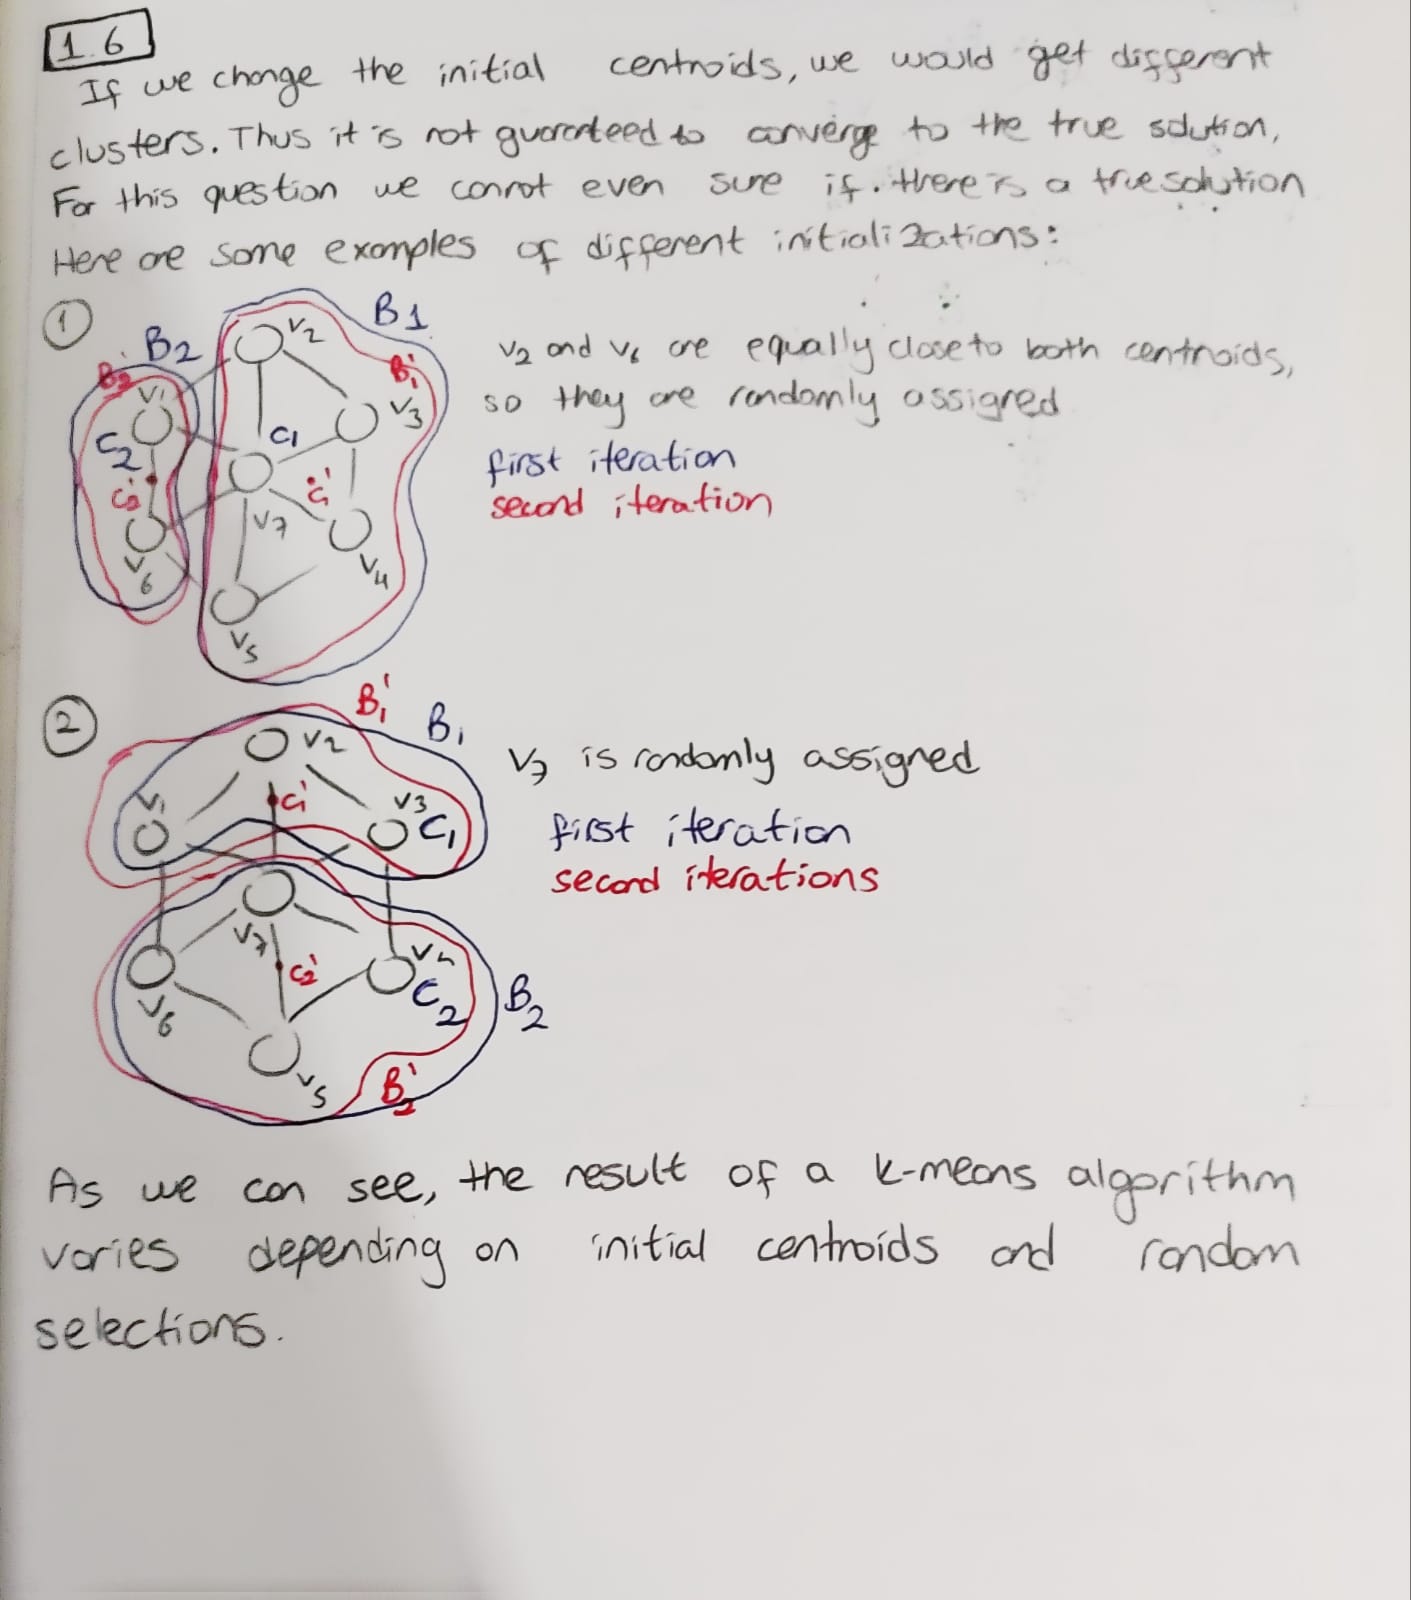 1.6
If we change the initial centroids, we would get different
clusters. Thus it is not guaranteed to converge to the true solution,
For this question we connot even sure if. there is a true solution
Here are some examples of different initializations:
1
B2
B1
V2
B2'
B1'
V1
V3
C2
C1
C2'
C1'
V7
V6
V4
V5
V2 and V6 are equally close to both centroids,
so they are randomly assigned
first iteration
second iteration
2
B1'
B1
V2
V1
C1'
V3
C1
V7
V4
C2'
C2
B2
V6
V5
B2'
V7 is randomly assigned
first iteration
second iterations
As we can see, the result of a k-means algorithm
varies depending on initial centroids and random
selections.